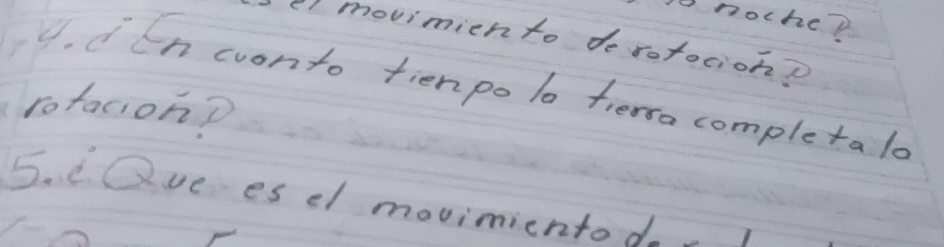 el movimiento de rotación?
noche?
4. ¿En cuanto tienpo la tierra completa la
rotación?
5. ¿Que es el movimiento de